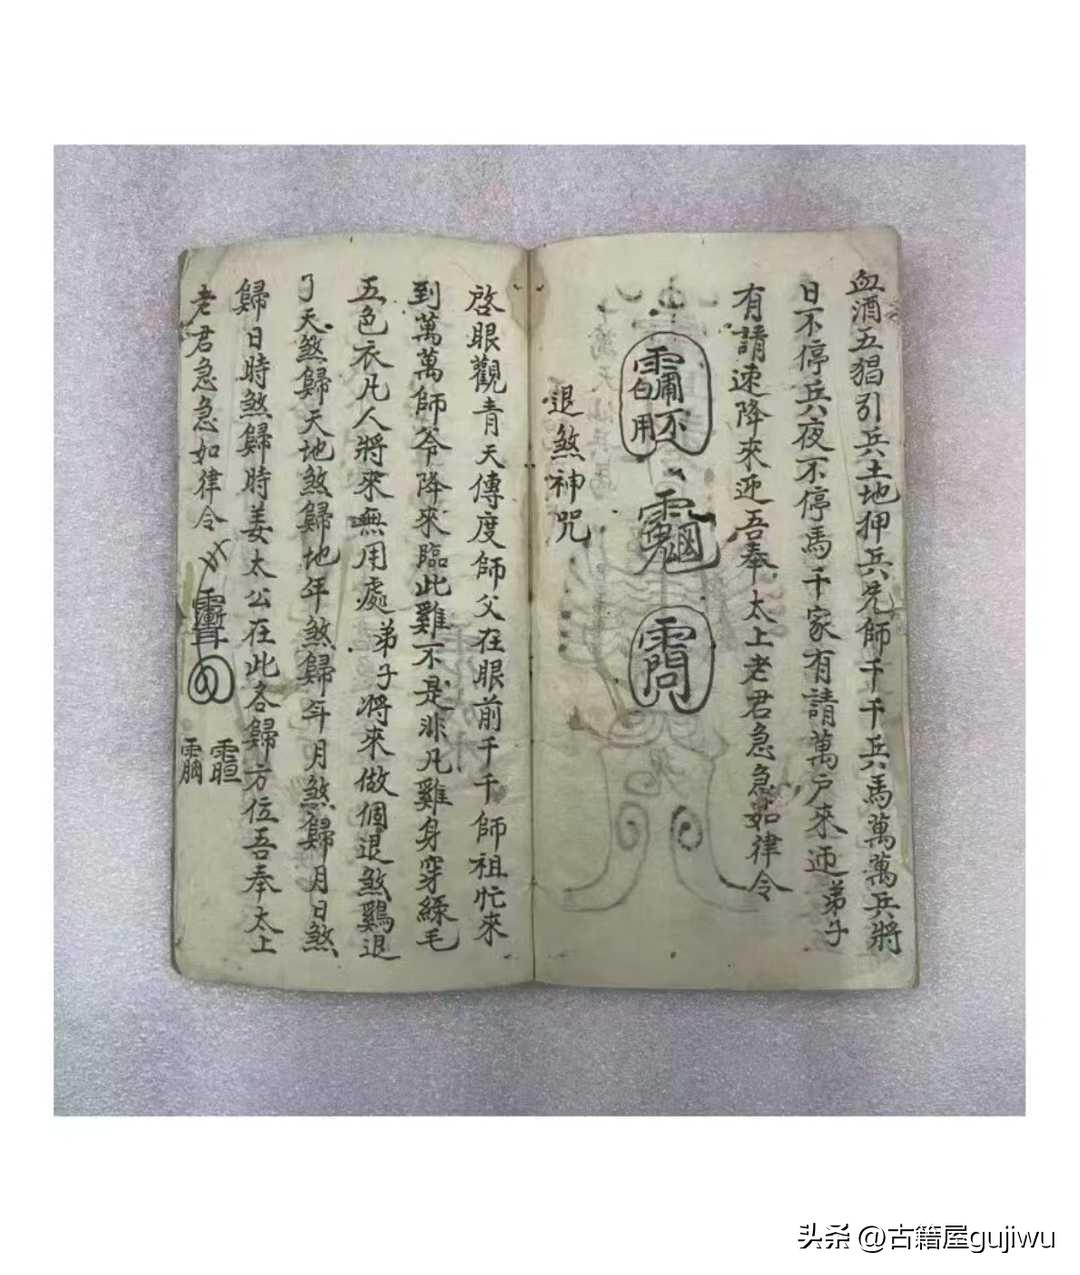 血酒五猖引兵土地押兵先師千千兵馬萬萬兵將
日不停兵夜不停馬千家有請萬户來迎弟子
有請速降來迎吾奉太上老君急急如律令
退煞神咒
啓眼觀青天傳度師父在眼前千千師祖忙來
到萬萬師爷降來臨此雞不是非凡雞身穿綠毛
五色衣凡人將來無用處弟子将來做個退煞鷄退
了天煞歸天地煞歸地年煞歸年月煞歸月日煞
歸日時煞歸時姜太公在此各歸方位吾奉太上
老君急急如律令
头条 @古籍屋gujiwu